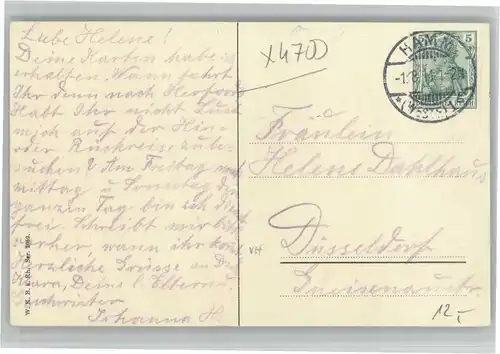 Liebe Helene!
Deine Karten habe
erhalten. Wann fahrt
Ihr denn nach Herford
Habt Ihr nicht Lust
mich auf der Hin-
oder Rückreise zu be-
suchen? Am Freitag nach
mittag u. Sonntag den
ganzen Tag bin ich dienst
frei. Schreibt mir bitte
vorher, wann ihr kommt
Herzliche Grüsse an Dich
Deine l. Eltern
Johanna H.
W. H. D.
x4700
5
HAMM
(Westf.)
Fräulein
Helene Dahlhaus
VH
Düsseldorf
Gneisenaustr.
12,-